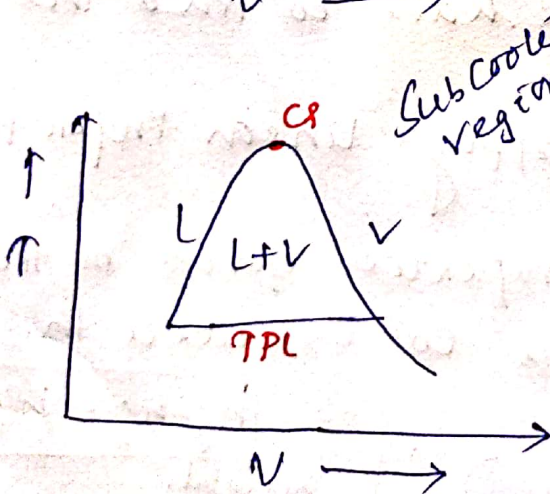 Subcoole
regio
CP
L
V
L+V
T
TPL
V